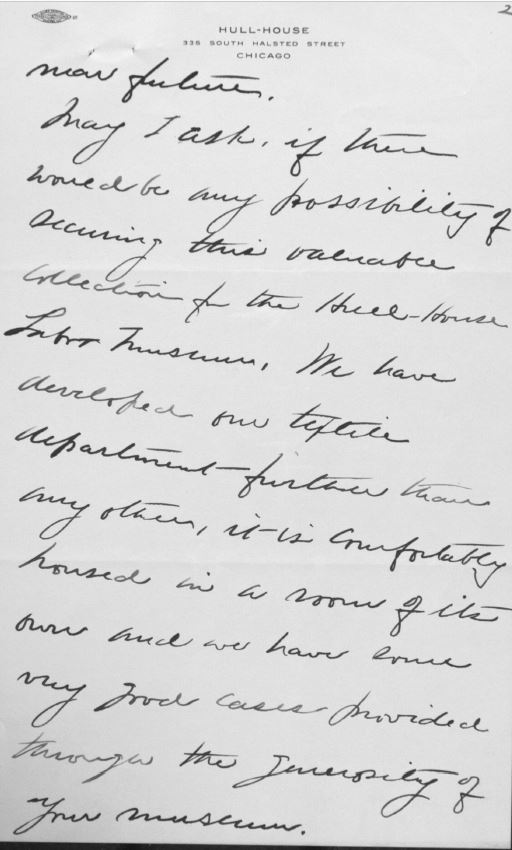 2
HULL-HOUSE
335 SOUTH HALSTED STREET
CHICAGO
near future.
May I ask, if there
would be any possibility of
securing this valuable
collection for the Hull-House
Labor Museum. We have
developed our textile
department further than
any other, it is comfortably
housed in a room of its
own and we have some
very good cases provided
through the generosity of
your museum.